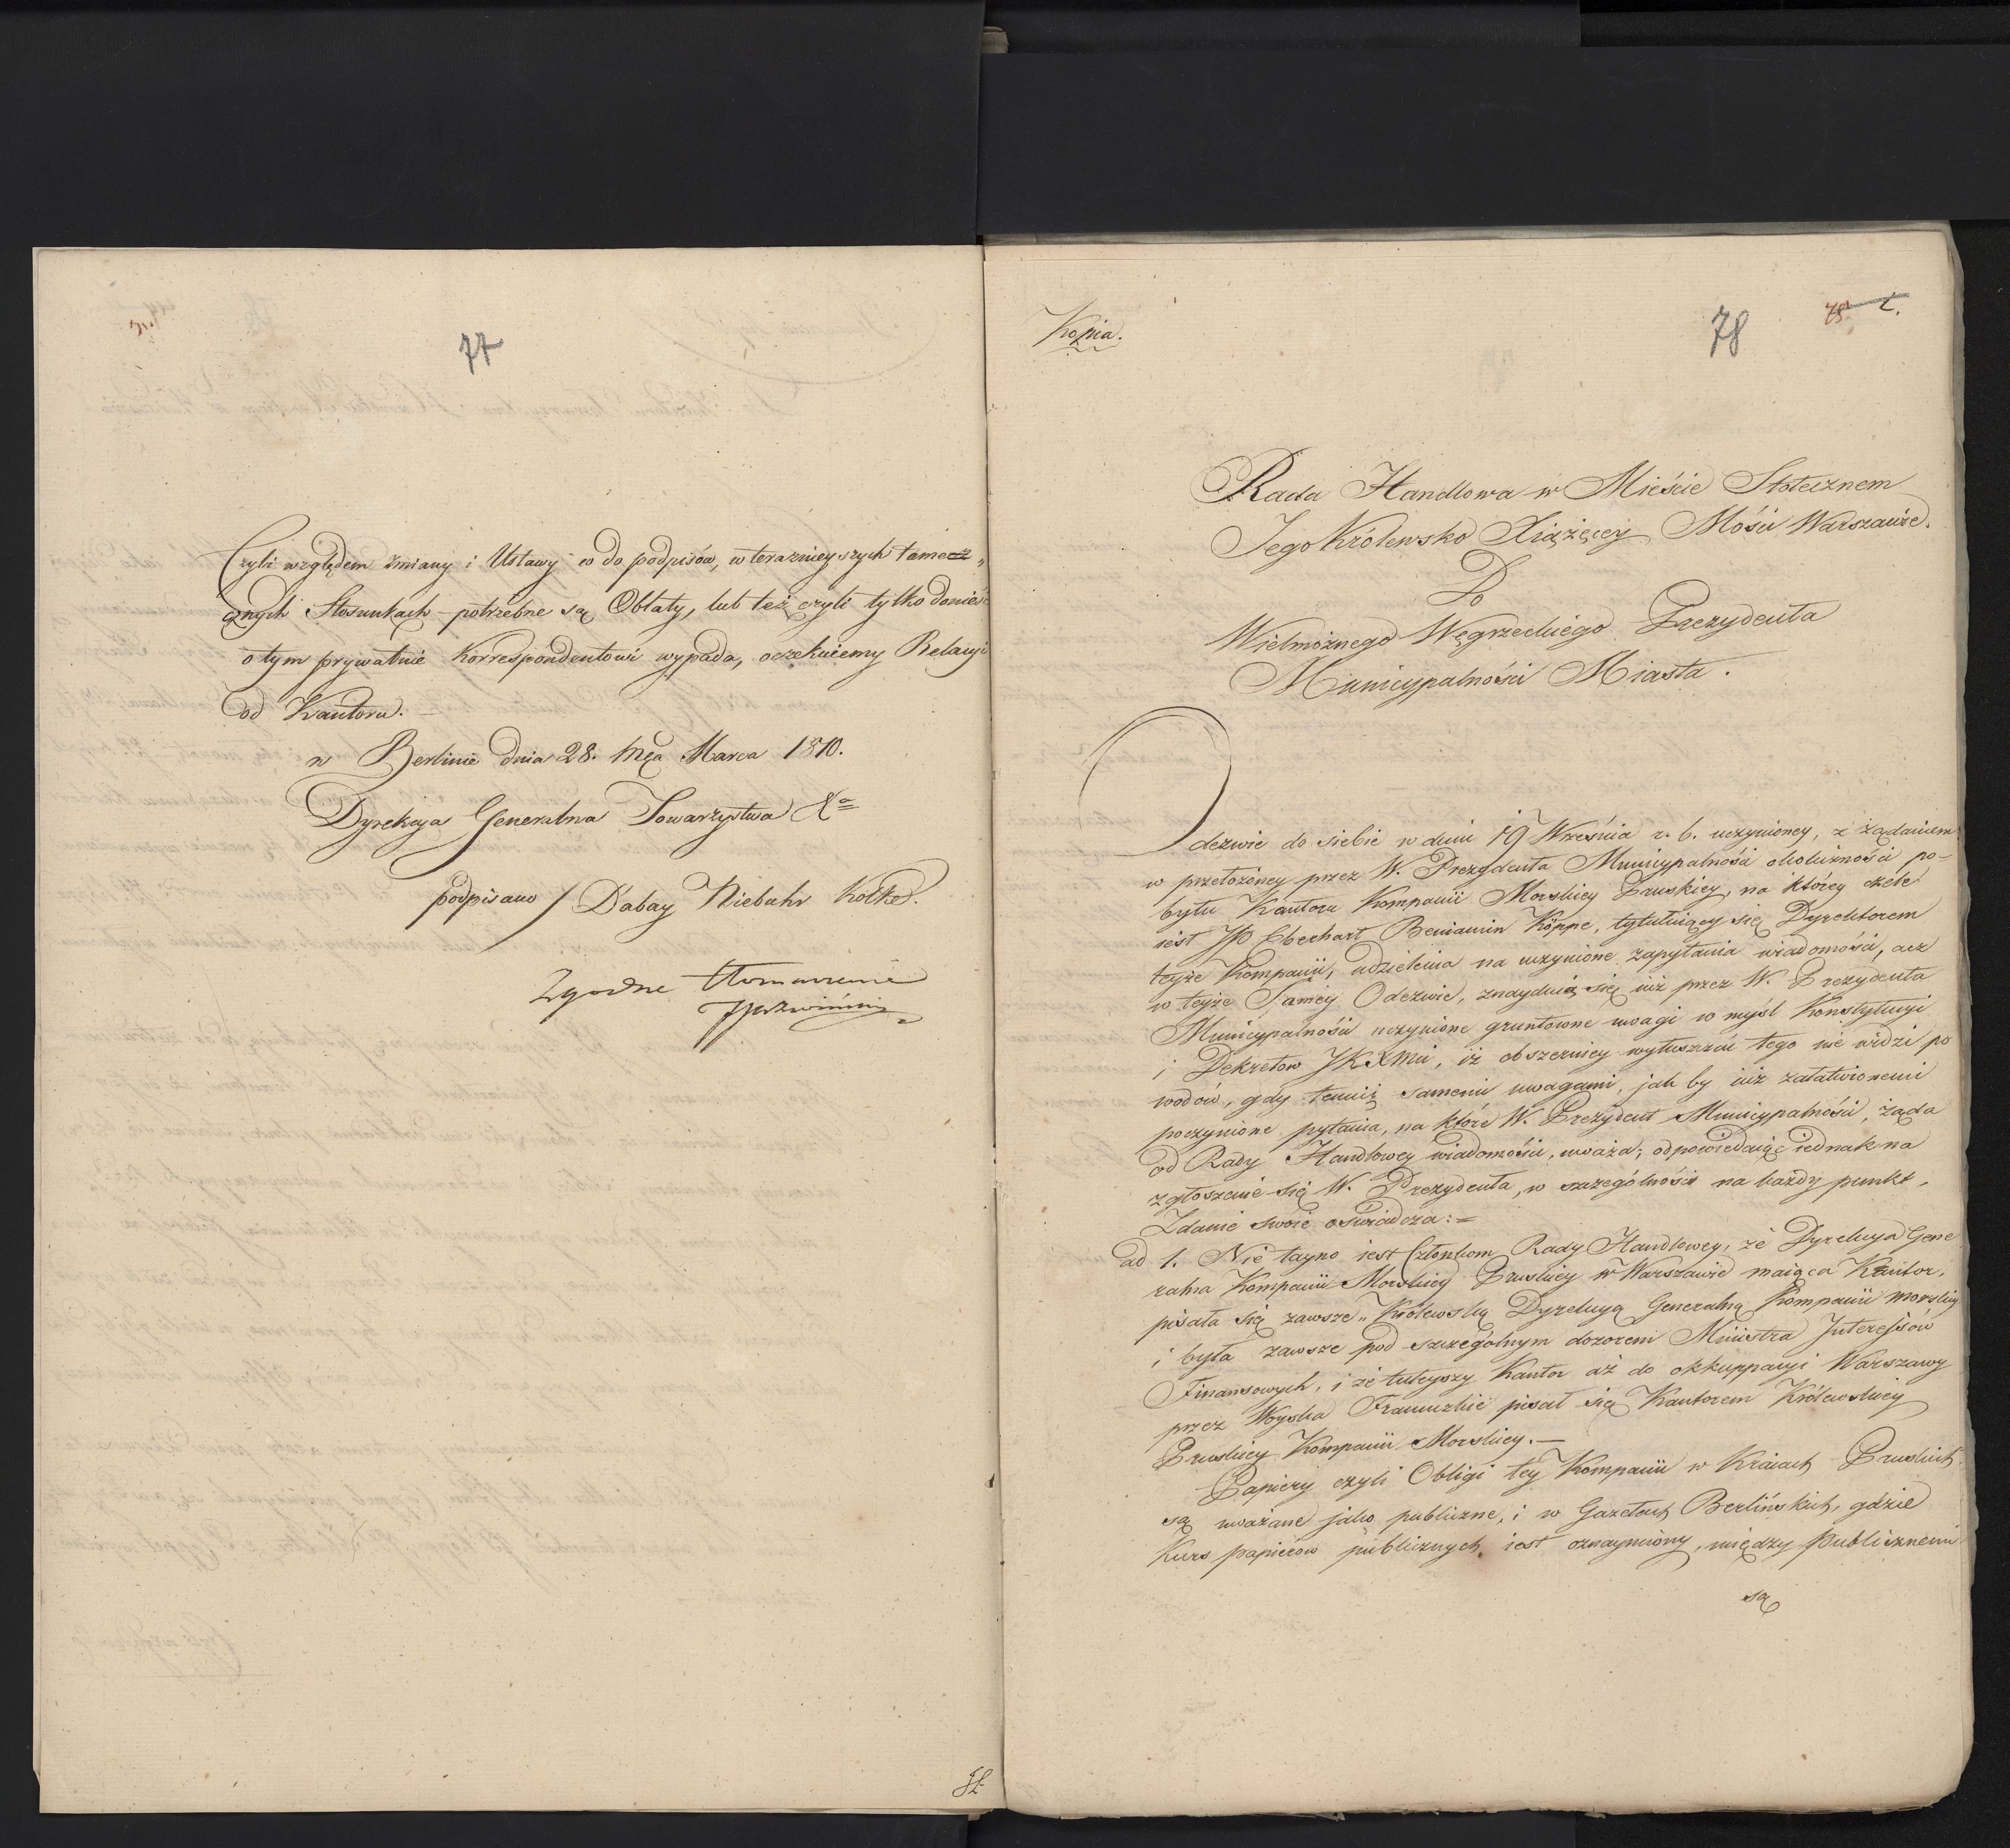 77
Czyli względem zmiany i Ustawy co do podpisów, w teraznieyszych tamecz„
cznych Stosunkach potrzebne są Oblaty, lub też czyli tylko donieść
o tym prywatnie Korrespondentowi wypada, oczekuiemy Relacyi
od Kantoru.
w Berlinie dnia 28. Mca Marca 1810.
Dyrekcya Generalna Towarzystwa &a
podpisano / Labay Niebuhr Kolke.
Zgodne tłomaczenie
Kopia.
78
Rada Handlowa w Mieście Stołecznem
Jego Królewsko Xiążęcey Mości Warszawie.
Do
Wielmożnego Węgrzeckiego Prezydenta
Municypalności Miasta.
Odezwie do siebie w dniu 19 Września r. b. uczynioney, z żądaniem
w przełożoney przez W. Prezydenta Municypalności okoliczności po=
bytu Kantoru Kompanii Morskiey Pruskiey, na którey czele
iest JP Eberhart Beniamin Köppe, tytułuiący się Dyrektorem
teyże Kompanii, udzielenia na uczynione zapytania wiadomości, acz
w teyże Samey Odezwie, znayduią się iuż przez W. Prezydenta
Municypalności uczynione gruntowne uwagi w myśl Konstytucyi
i Dekretow JKXMci, iż obszerniey wyłuszczać tego nie widzi po
wodów, gdy temiż samemi uwagami, jak by iuż załatwionemi
poczynione pytania, na które W. Prezydent Municypalności, żąda
od Rady Handlowey wiadomości, uważa; odpowiedaiąc iednak na
zgłoszenie się W. Prezydenta, w szczególności na każdy punkt,
Zdanie swoie oświadcza:=
ad 1. Nie tayno iest Członkom Rady Handlowey, że Dyrekcya Gene
ralna Kompanii Morskiey Pruskiey w Warszawie maiąca Kantor,
pisała się zawsze „Królewską Dyrekcyą Generalną Kompanii morskiey
i była zawsze pod szczególnym dozorem Ministra Interessów
Finansowych, i że tuteyszy Kantor aż do okkuppacyi Warszawy
przez Woyska Francuzkie pisał się Kantorem Królewskiey
Pruskiey Kompanii Morskiey.—
Papiery czyli Obligi tey Kompanii w Kraiach Pruskich
są uważane jako publiczne, i w Gazetach Berlińskich, gdzie
Kurs papierów publicznych iest oznaymiony, między Publicznemi
są